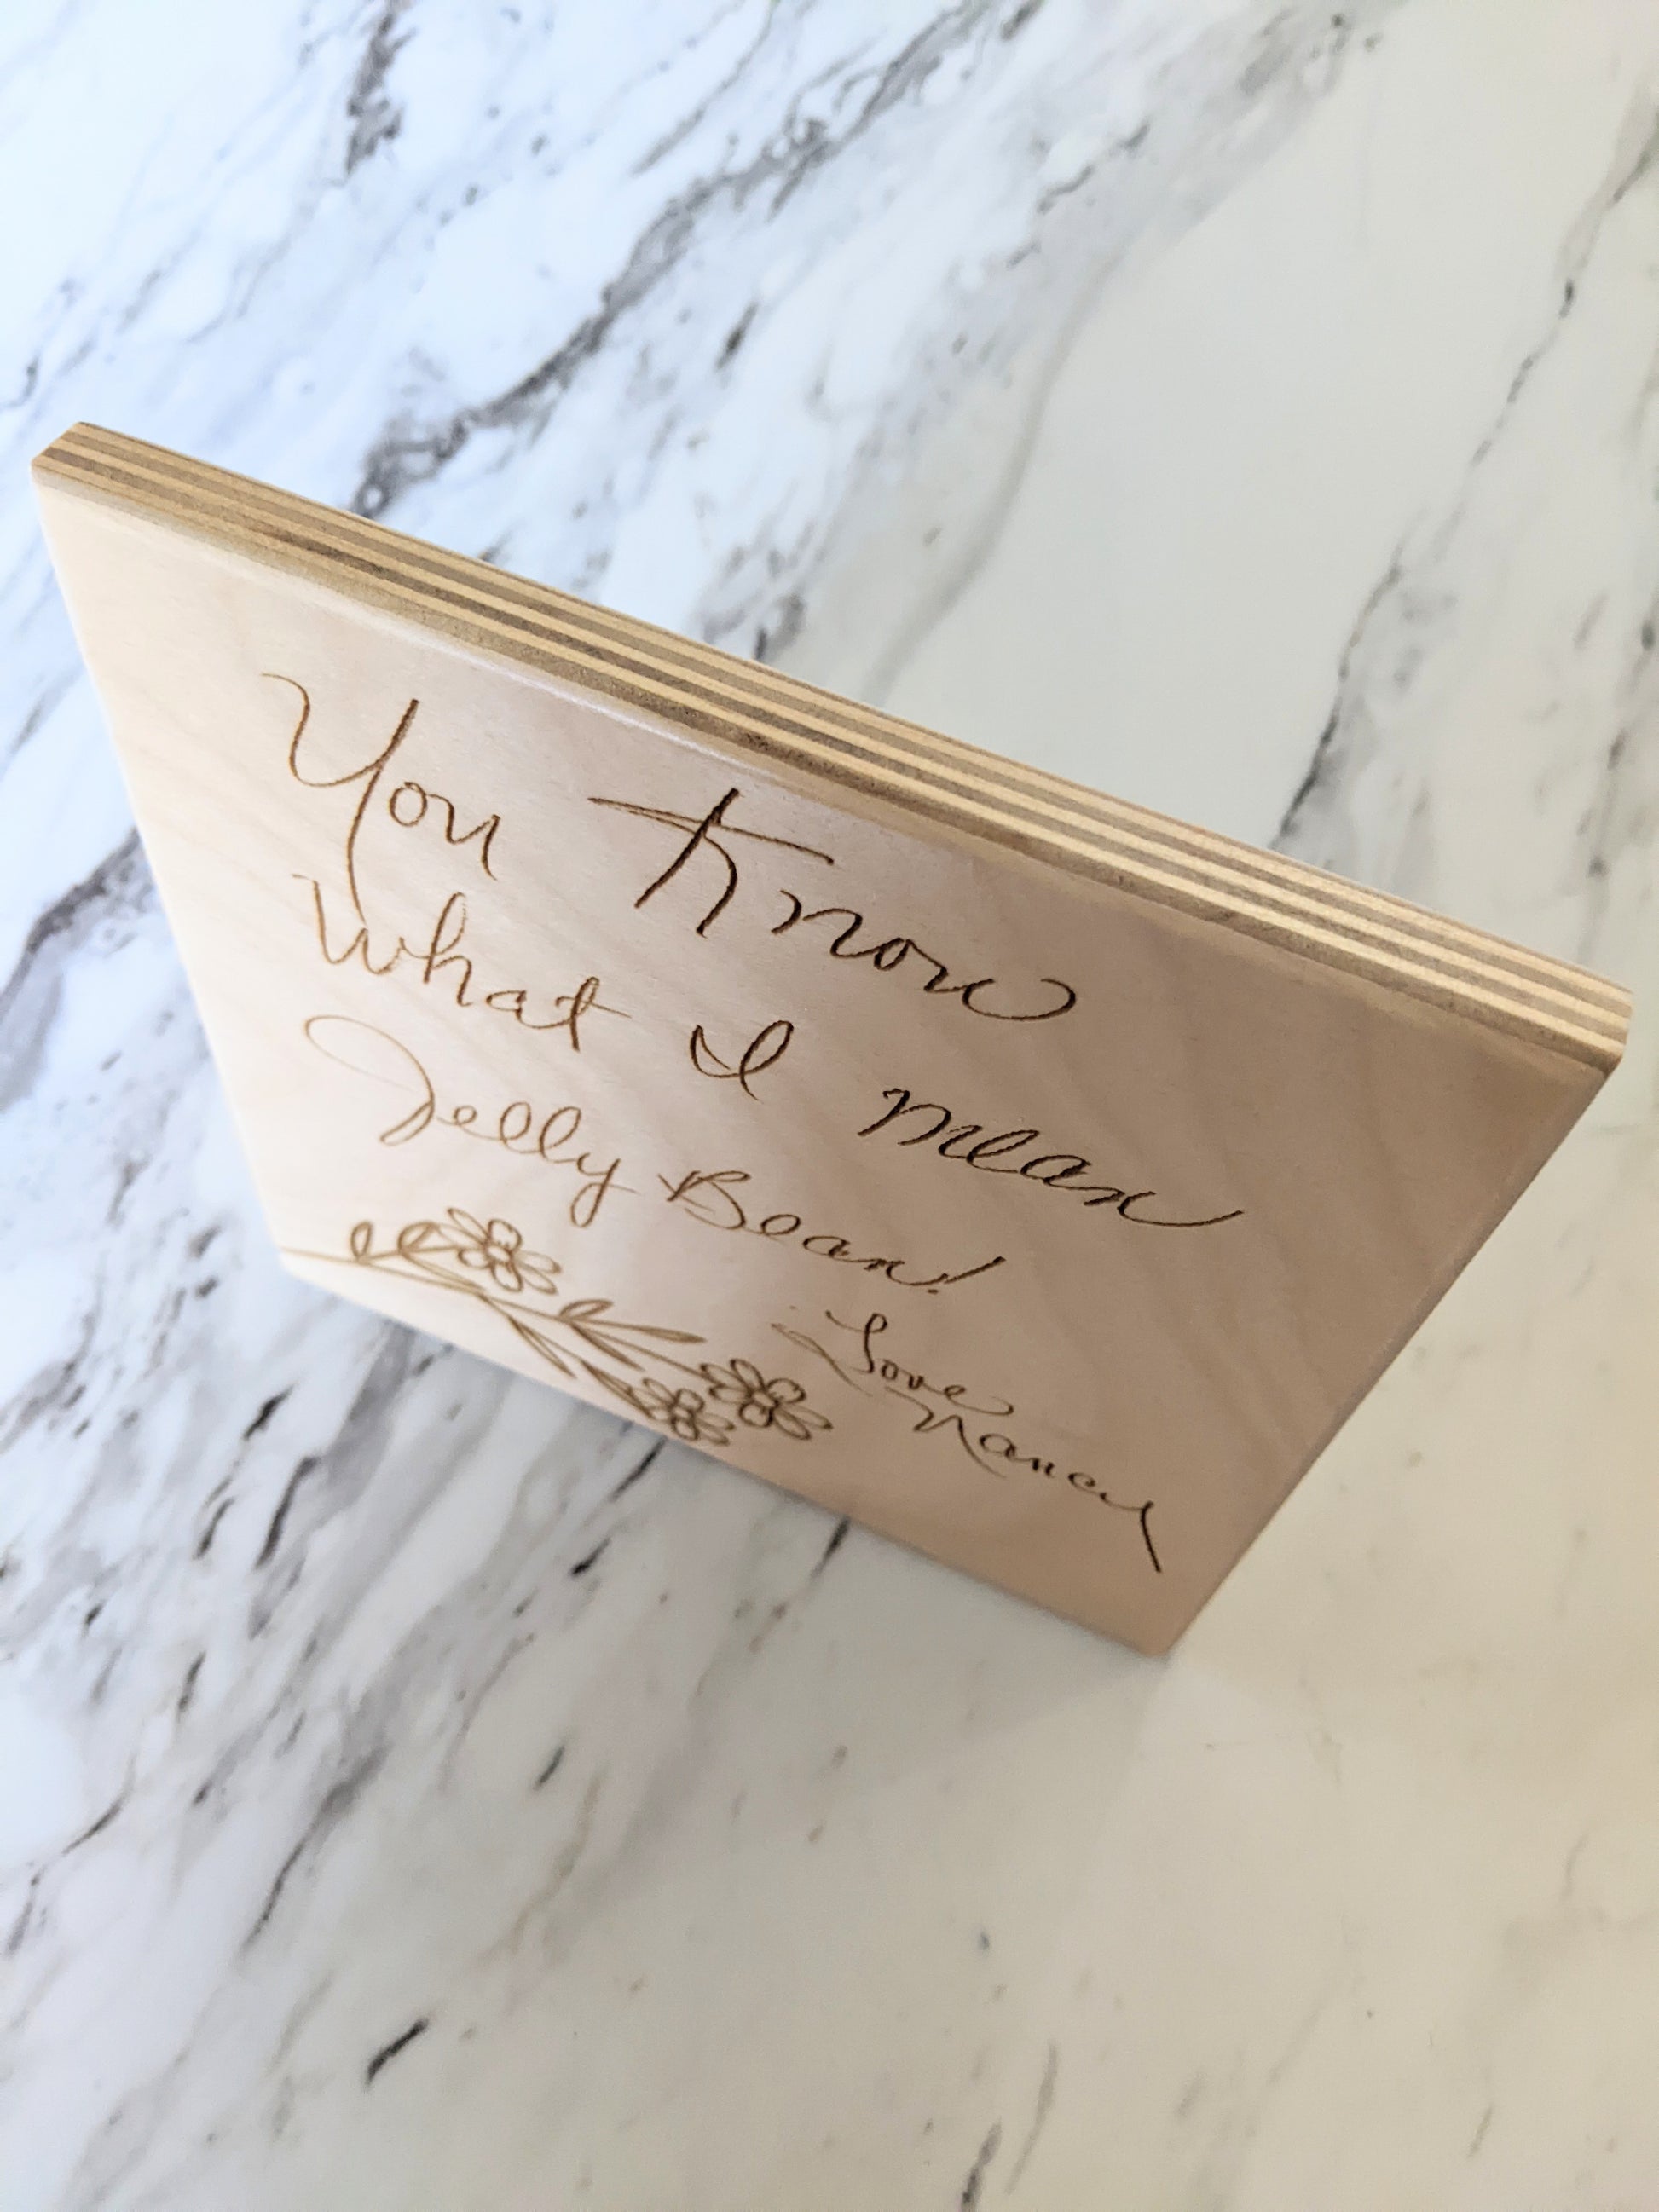 You Know
What I mean
Jelly Bean!
Love
Nancy